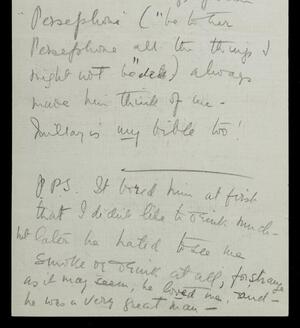 "Persephone" ("be to her
Persephone all the things I
might not be" etc) always
made him think of me -
Millay is my bible too!
PPS. It bored him at first
that I didn't like to drink much -
but later he hated to see me
smoke or drink at all, for strange
as it may seem, he loved me, and -
he was a very great man -